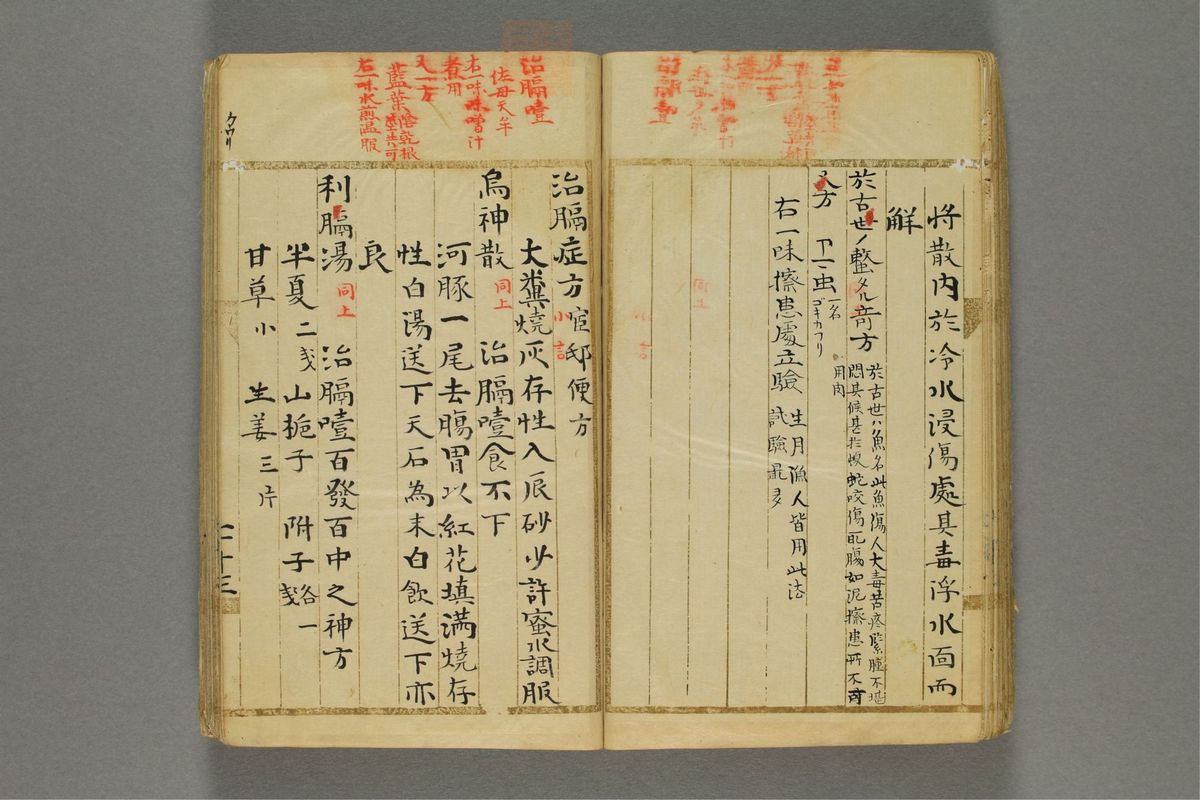 将散内於冷水浸傷處其毒浮水面而
解
於古世ノ螫タル奇方
於古世ハ魚名此魚傷人大毒苦疼緊腫不堪
悶其候甚於蝮蛇咬傷
腸如泥擦患所不育
又方
虫一名
ゴキカフリ
用肉
右一味擦患處立驗
生月漁人皆用此法
試驗最多
治膈噎
佐毋天牟
右一味味噌汁
煮用
又一方
藍葉陰乾根
莖共可
右一味水煎温服
治膈症方
宦邸便方
小記
大糞燒灰存性入辰砂少許蜜水調服
烏神散
同上
治膈噎食不下
河豚一尾去腸胃以紅花填満燒存
性白湯送下天石為末白飲送下亦
良
利膈湯
同上
治膈噎百發百中之神方
半夏二戔 山梔子 附子各一戔
甘草小 生姜三片
二十三